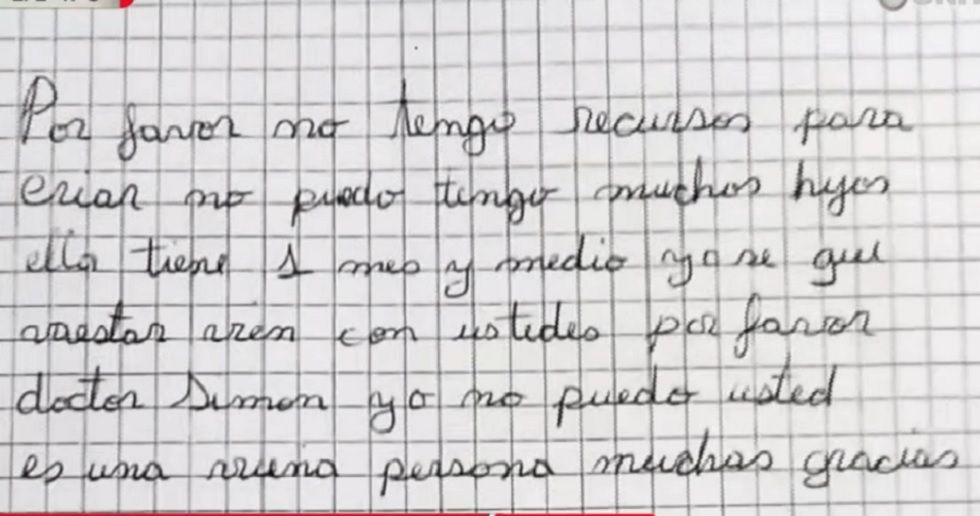 Por favor no tengo recursos para
criar no puedo tengo muchos hijos
ella tiene 1 mes y medio yo se que
vaestar vien con ustedes por favor
doctor Simon yo no puedo usted
es una vuena persona muchas gracias